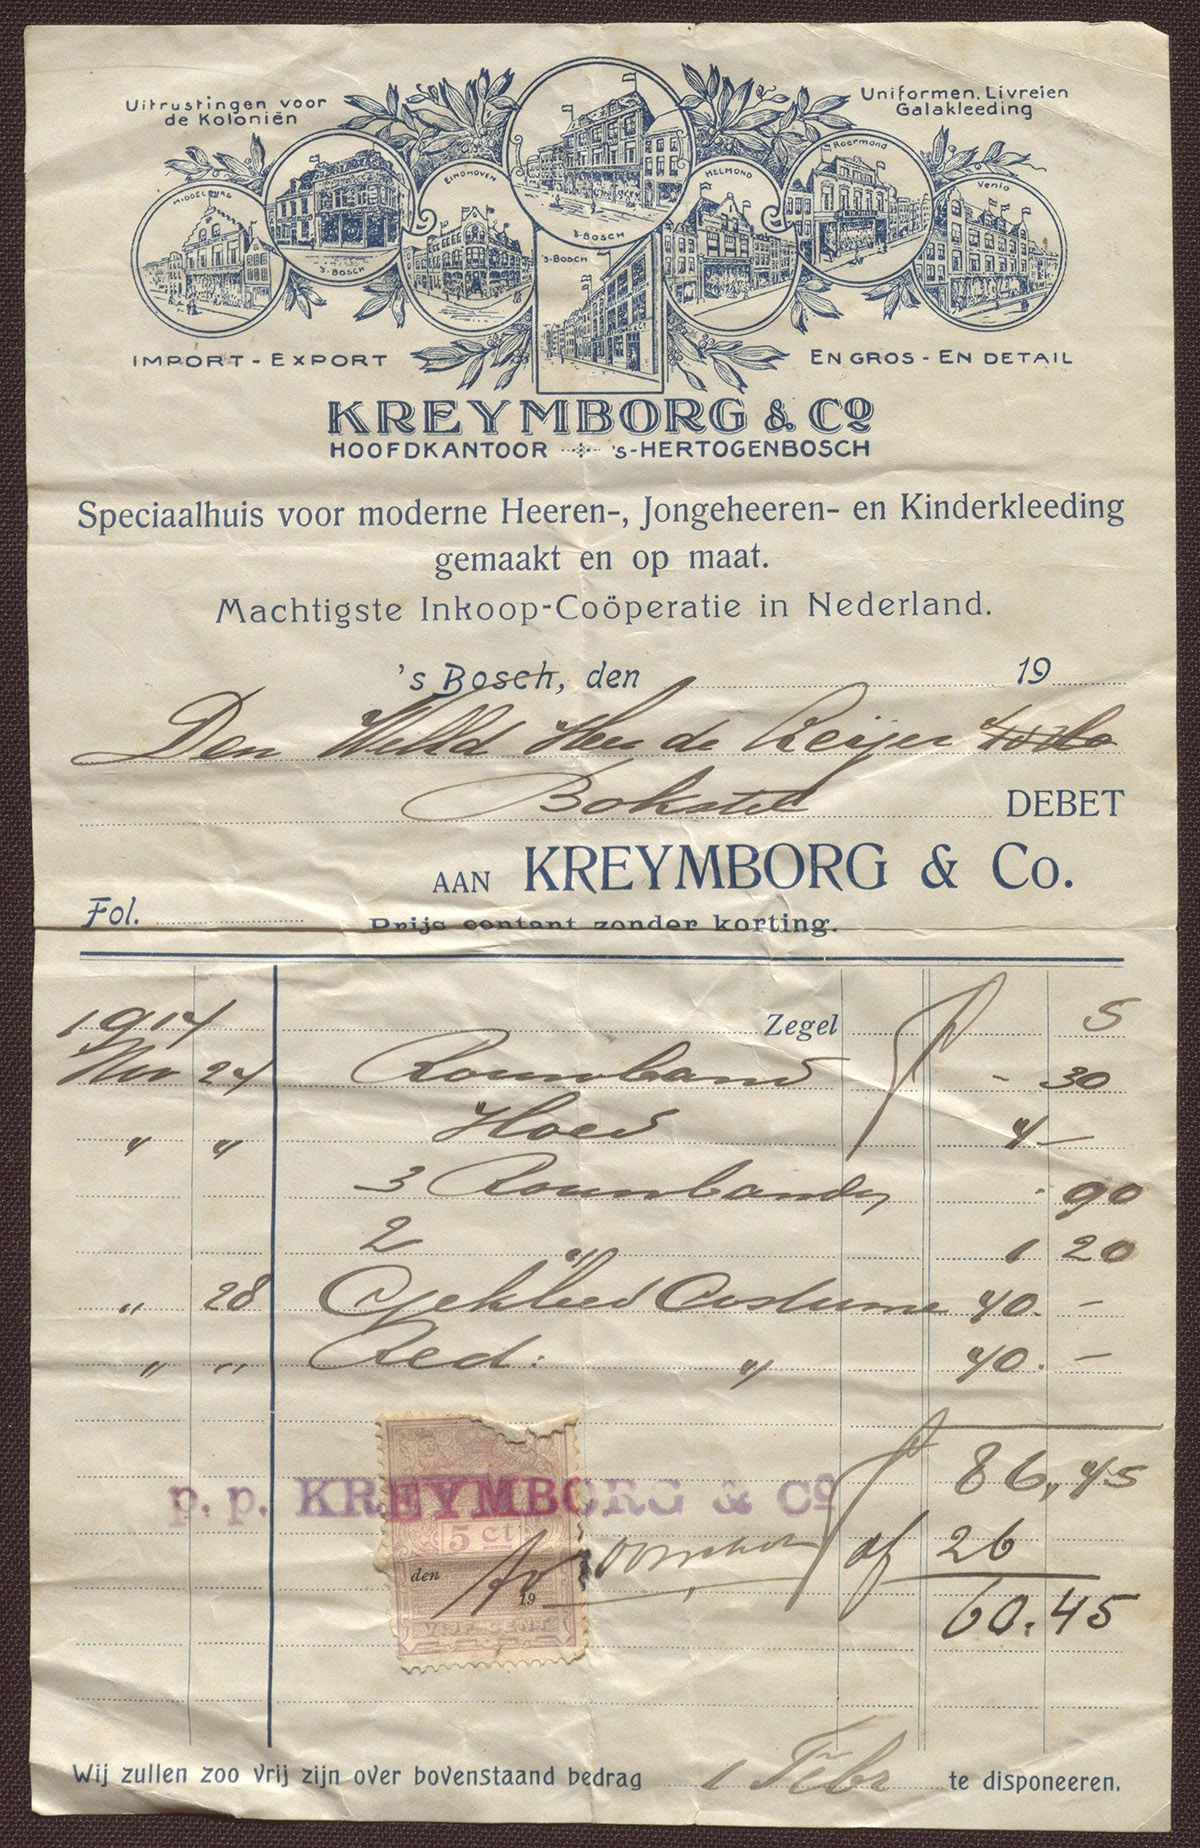 Uitrustingen voor
de Koloniën
Uniformen, Livreien
Galakleeding
MIDDELBURG
'S-BOSCH
EINDHOVEN
'S-BOSCH
'S-BOSCH
HELMOND
Roermond
Venlo
IMPORT - EXPORT
EN GROS - EN DETAIL
KREYMBORG & Co
HOOFDKANTOOR 's-HERTOGENBOSCH
Speciaalhuis voor moderne Heeren-, Jongeheeren- en Kinderkleeding
gemaakt en op maat.
Machtigste Inkoop-Coöperatie in Nederland.
's Bosch, den 19
Den Heer de Reijer
Bokstel DEBET
AAN KREYMBORG & Co.
Fol. Prijs contant zonder korting.
1914 Zegel f 5
Nov 24 Rouwband - 30
" " Hoed 4 -
3 Rouwbanden 90
2 " 1 20
" 28 Gekleed Costume 40. -
" " Red: " 40. -
f 86,45
p. p. KREYMBORG & Co
5 ct
af 26
den 19
VIJF CENT
60.45
Wij zullen zoo vrij zijn over bovenstaand bedrag 1 Febr te disponeeren.